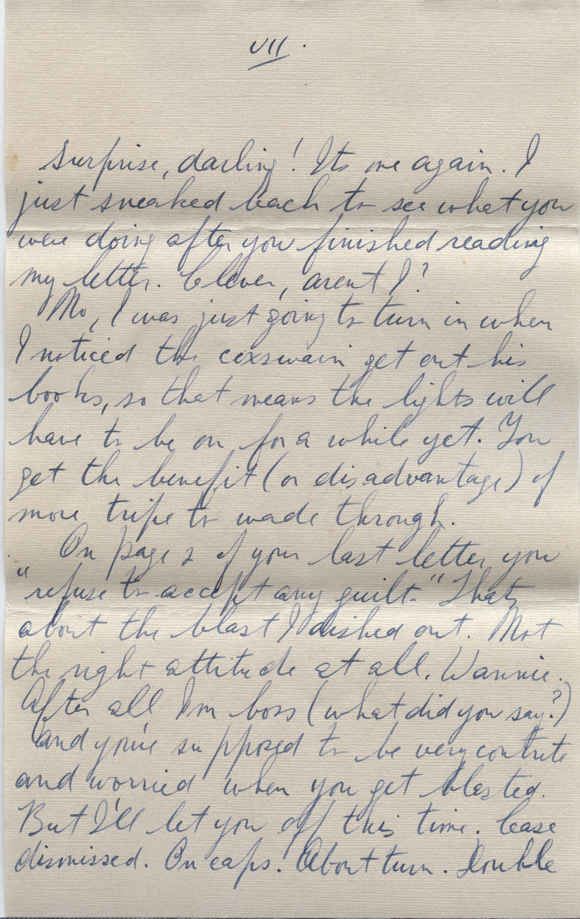 VII.
Surprise, darling! Its me again. I
just sneaked back to see what you
were doing after you finished reading
my letter. Clever, arent I?
No, I was just going to turn in when
I noticed the coxswain get out his
books, so that means the lights will
have to be on for a while yet. You
get the benefit (or disadvantage) of
more tripe to wade through.
On page 2 of your last letter you
"refuse to accept any guilt." Thats
about the blast I dished out. Not
the right attitude at all, Wannie.
After all Im boss (what did you say?)
and you're supposed to be very contrite
and worried when you get blasted.
But I'll let you off this time. Case
dismissed. On caps. About turn. Double